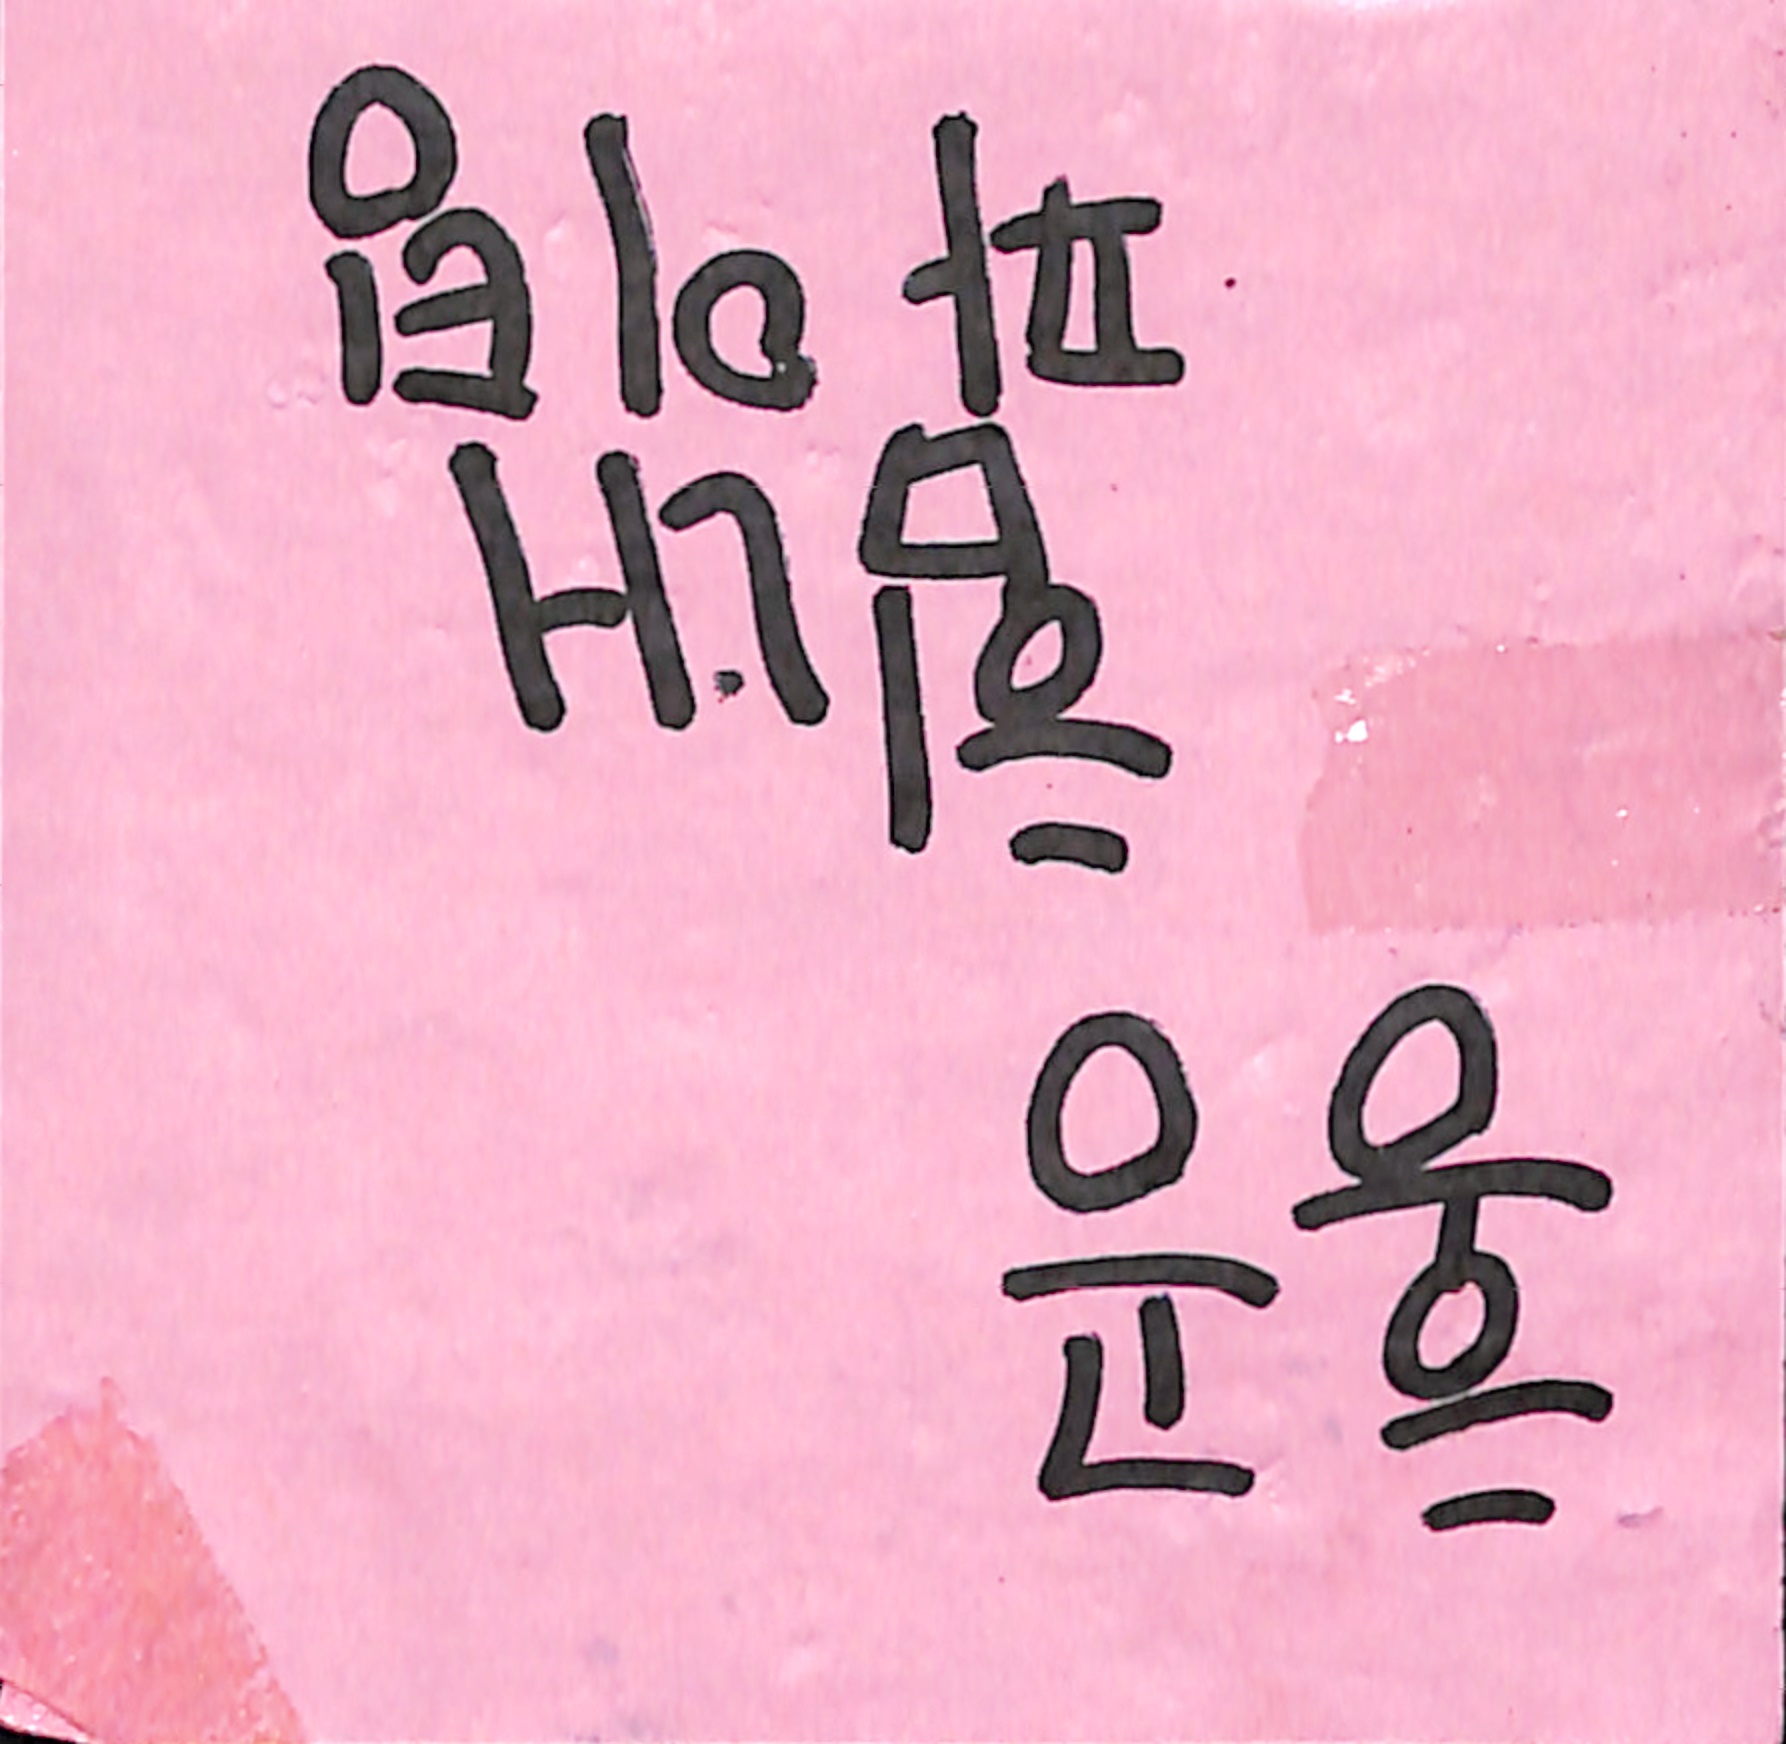 홍공
힘내
파이팅